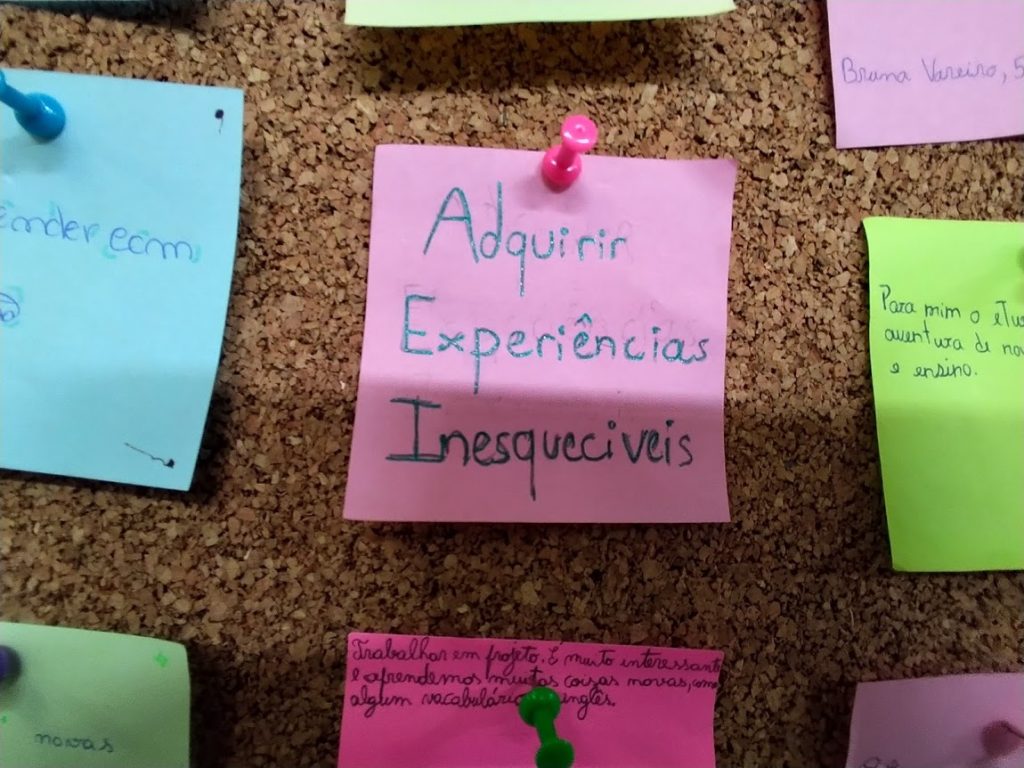 Bruna Vareiro, 5
ender com
Adquirir
Experiências
Inesqueciveis
Para mim o
aventura de nov
e ensino.
Trabalhar em projeto. É muito interessante
e aprendemos muitas coisas novas, como
algum vocabulário inglês.
novas